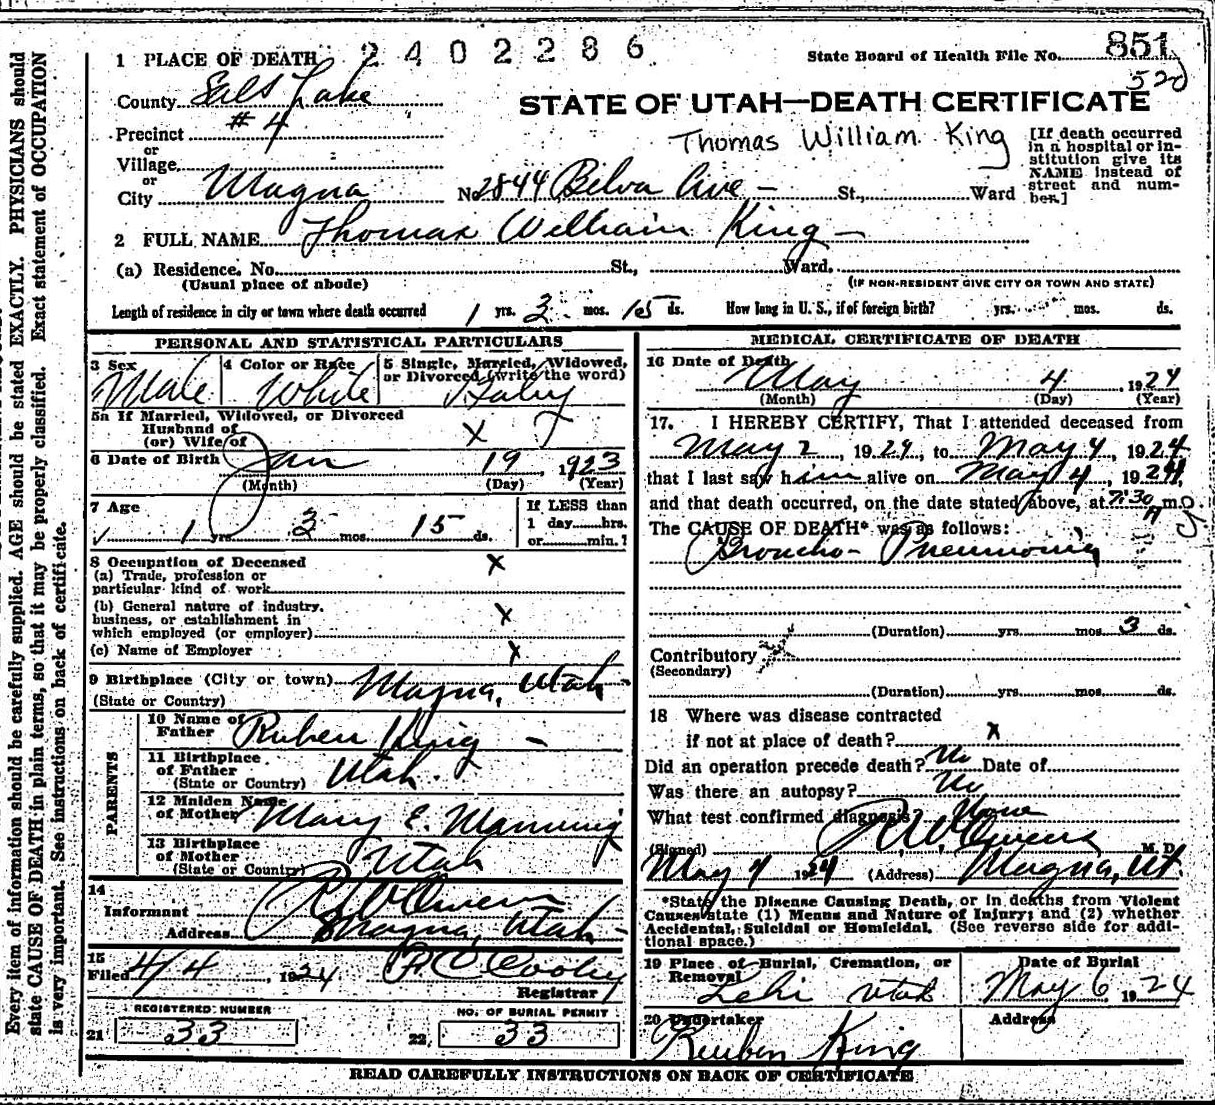 1 PLACE OF DEATH 2402286 State Board of Health File No. 851
520
County Salt Lake
STATE OF UTAH—DEATH CERTIFICATE
Precinct #4
or
Village
or
City Magna No 2844 Belva Ave - St., Ward
Thomas William King
[If death occurred
in a hospital or in-
stitution give its
NAME instead of
street and num-
ber.]
2 FULL NAME Thomas William King -
(a) Residence. No. St., Ward.
(Usual place of abode) (IF NON-RESIDENT GIVE CITY OR TOWN AND STATE)
Length of residence in city or town where death occurred 1 yrs. 3 mos. 15 ds. How long in U. S., if of foreign birth? yrs. mos. ds.
PERSONAL AND STATISTICAL PARTICULARS
3 Sex Male
4 Color or Race White
5 Single, Married, Widowed,
or Divorced (write the word)
Baby
5a If Married, Widowed, or Divorced
Husband of
(or) Wife of X
6 Date of Birth Jan 19 1923
(Month) (Day) (Year)
7 Age
1 yrs 3 mos. 15 ds.
If LESS than
1 day hrs.
or min.?
8 Occupation of Deceased X
(a) Trade, profession or
particular kind of work
(b) General nature of industry,
business, or establishment in
which employed (or employer) X
(c) Name of Employer X
9 Birthplace (City or town) Magna, Utah
(State or Country)
PARENTS
10 Name of
Father Ruben King -
11 Birthplace
of Father
(State or Country) Utah.
12 Maiden Name
of Mother Mary E. Manning
13 Birthplace
of Mother
(State or Country) Utah
14
Informant R W Owens
Address Magna, Utah -
15
Filed 4/4 1924
Registrar
REGISTERED NUMBER
21 33
NO. OF BURIAL PERMIT
22. 33
MEDICAL CERTIFICATE OF DEATH
16 Date of Death
May 4, 1924
(Month) (Day) (Year)
17. I HEREBY CERTIFY, That I attended deceased from
May 2, 1924, to May 4, 1924
that I last saw him alive on May 4, 1924,
and that death occurred, on the date stated above, at 7:30 A m.
The CAUSE OF DEATH* was as follows:
Broncho-Pneumonia
(Duration) yrs. mos. 3 ds.
Contributory X
(Secondary)
(Duration) yrs. mos. ds.
18 Where was disease contracted
if not at place of death? X
Did an operation precede death? No Date of
Was there an autopsy? No
What test confirmed diagnosis None
(Signed) R. W. Owens M. D.
May 4 1924 (Address) Magna, Ut.
*State the Disease Causing Death, or in deaths from Violent
Causes state (1) Means and Nature of Injury; and (2) whether
Accidental, Suicidal or Homicidal. (See reverse side for addi-
tional space.)
19 Place of Burial, Cremation, or
Removal
Lehi Utah
Date of Burial
May 6 1924
20 Undertaker
Reuben King
Address
READ CAREFULLY INSTRUCTIONS ON BACK OF CERTIFICATE
Every item of information should be carefully supplied. AGE should be stated EXACTLY. PHYSICIANS should
state CAUSE OF DEATH in plain terms, so that it may be properly classified. Exact statement of OCCUPATION
is very important. See instructions on back of certificate.